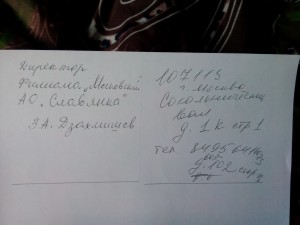 Директор
Филиала "Московский"
АО "Славянка"
З.А. Дзахмишев
107113
г. Москва
Сокольнический
вал
д. 1 К стр 1
тел 8495
доб